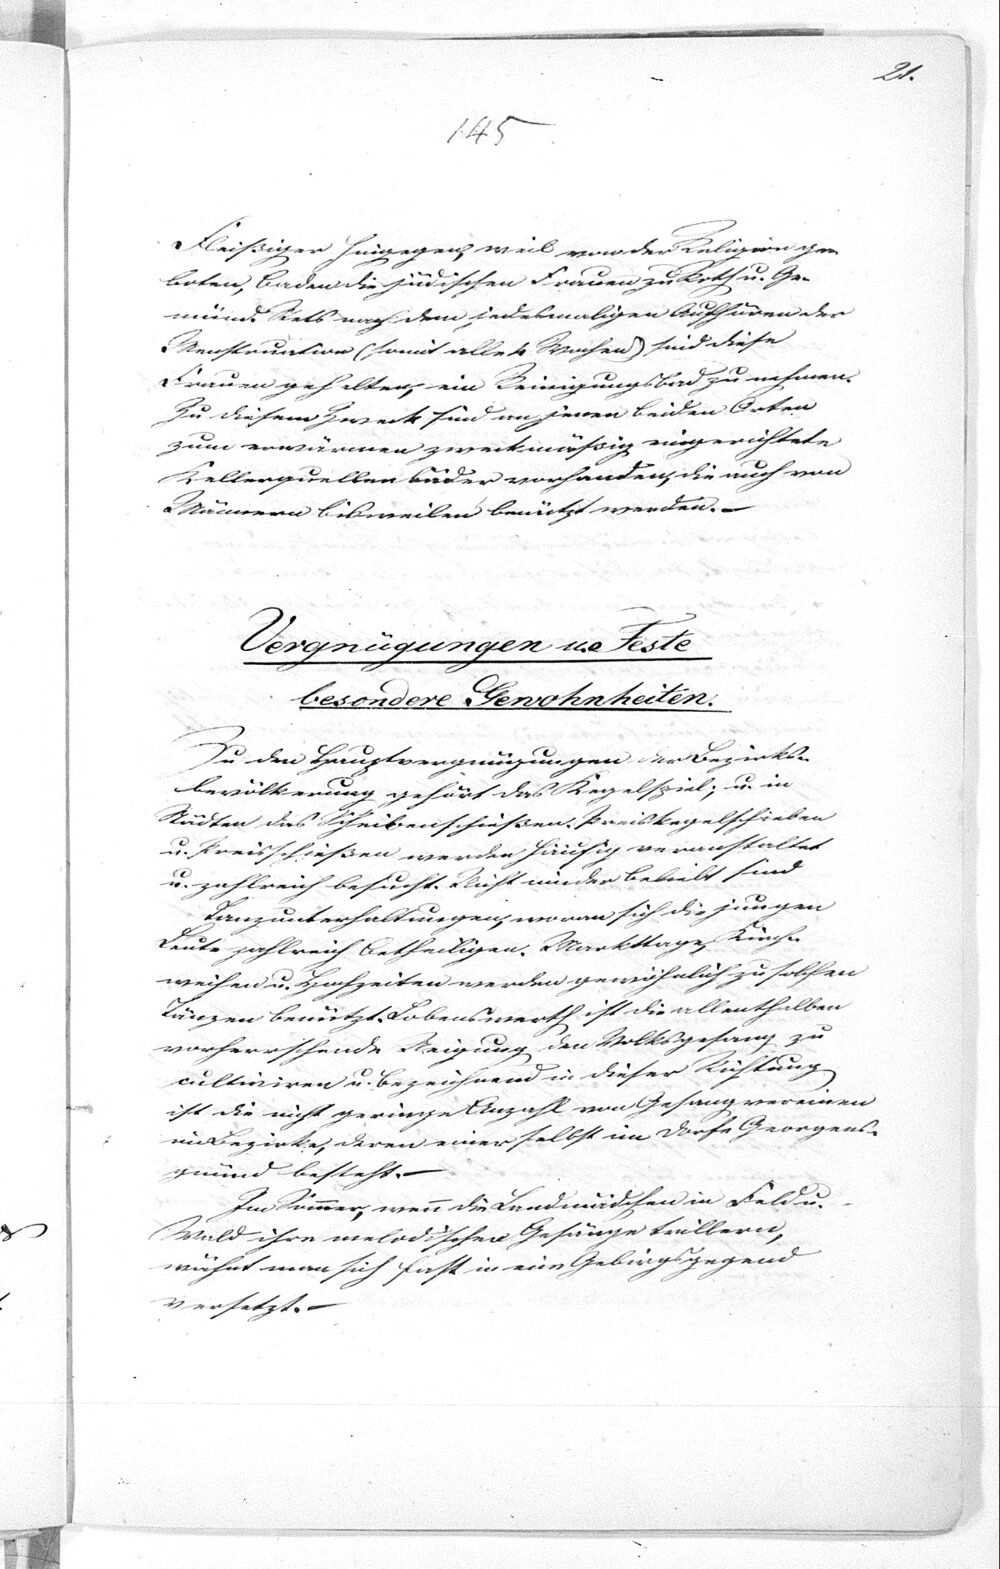 21.
145
Fleißiger hingegen, weil von der Religion ge-
boten, baden die jüdischen Frauen zu Roth u. Ge-
münd. Stets nach dem jedesmaligen Aufhören der
Menstruation (somit alle 4 Wochen) sind diese
Frauen gehalten, ein Reinigungsbad zu nehmen.
Zu diesem Zweck sind in jenen beiden Orten
zum erwärmen zweckmäßig eingerichtete
Kellerquellenbäder vorhanden, die auch von
Männern bisweilen benützt werden. —
Vergnügungen u. Feste
besondere Gewohnheiten.
Zu den Hauptvergnügungen der Bezirks-
bevölkerung gehört das Kegelspiel, u. in
Städten das Scheibenschießen. Preiskegelschieben
u. Preisschießen werden häufig veranstaltet
u. zahlreich besucht. Nicht minder beliebt sind
Tanzunterhaltungen, woran sich die jungen
Leute zahlreich betheiligen. Markttage, Kirch-
weihen u. Hochzeiten werden gewöhnlich zu solchen
Tänzen benützt. Lobenswerth ist die allenthalben
vorherrschende Neigung den Volksgesang zu
cultiviren u. bezeichnend in dieser Richtung
ist die nicht geringe Anzahl von Gesangvereinen
im Bezirke, deren einer selbst im Dorfe Georgens-
gmünd besteht. —
Im Sommer, wenn die Landmädchen in Feld u.
Wald ihre melodischen Gesänge trillern,
wähnt man sich fast in eine Gebirgsgegend
versetzt. —